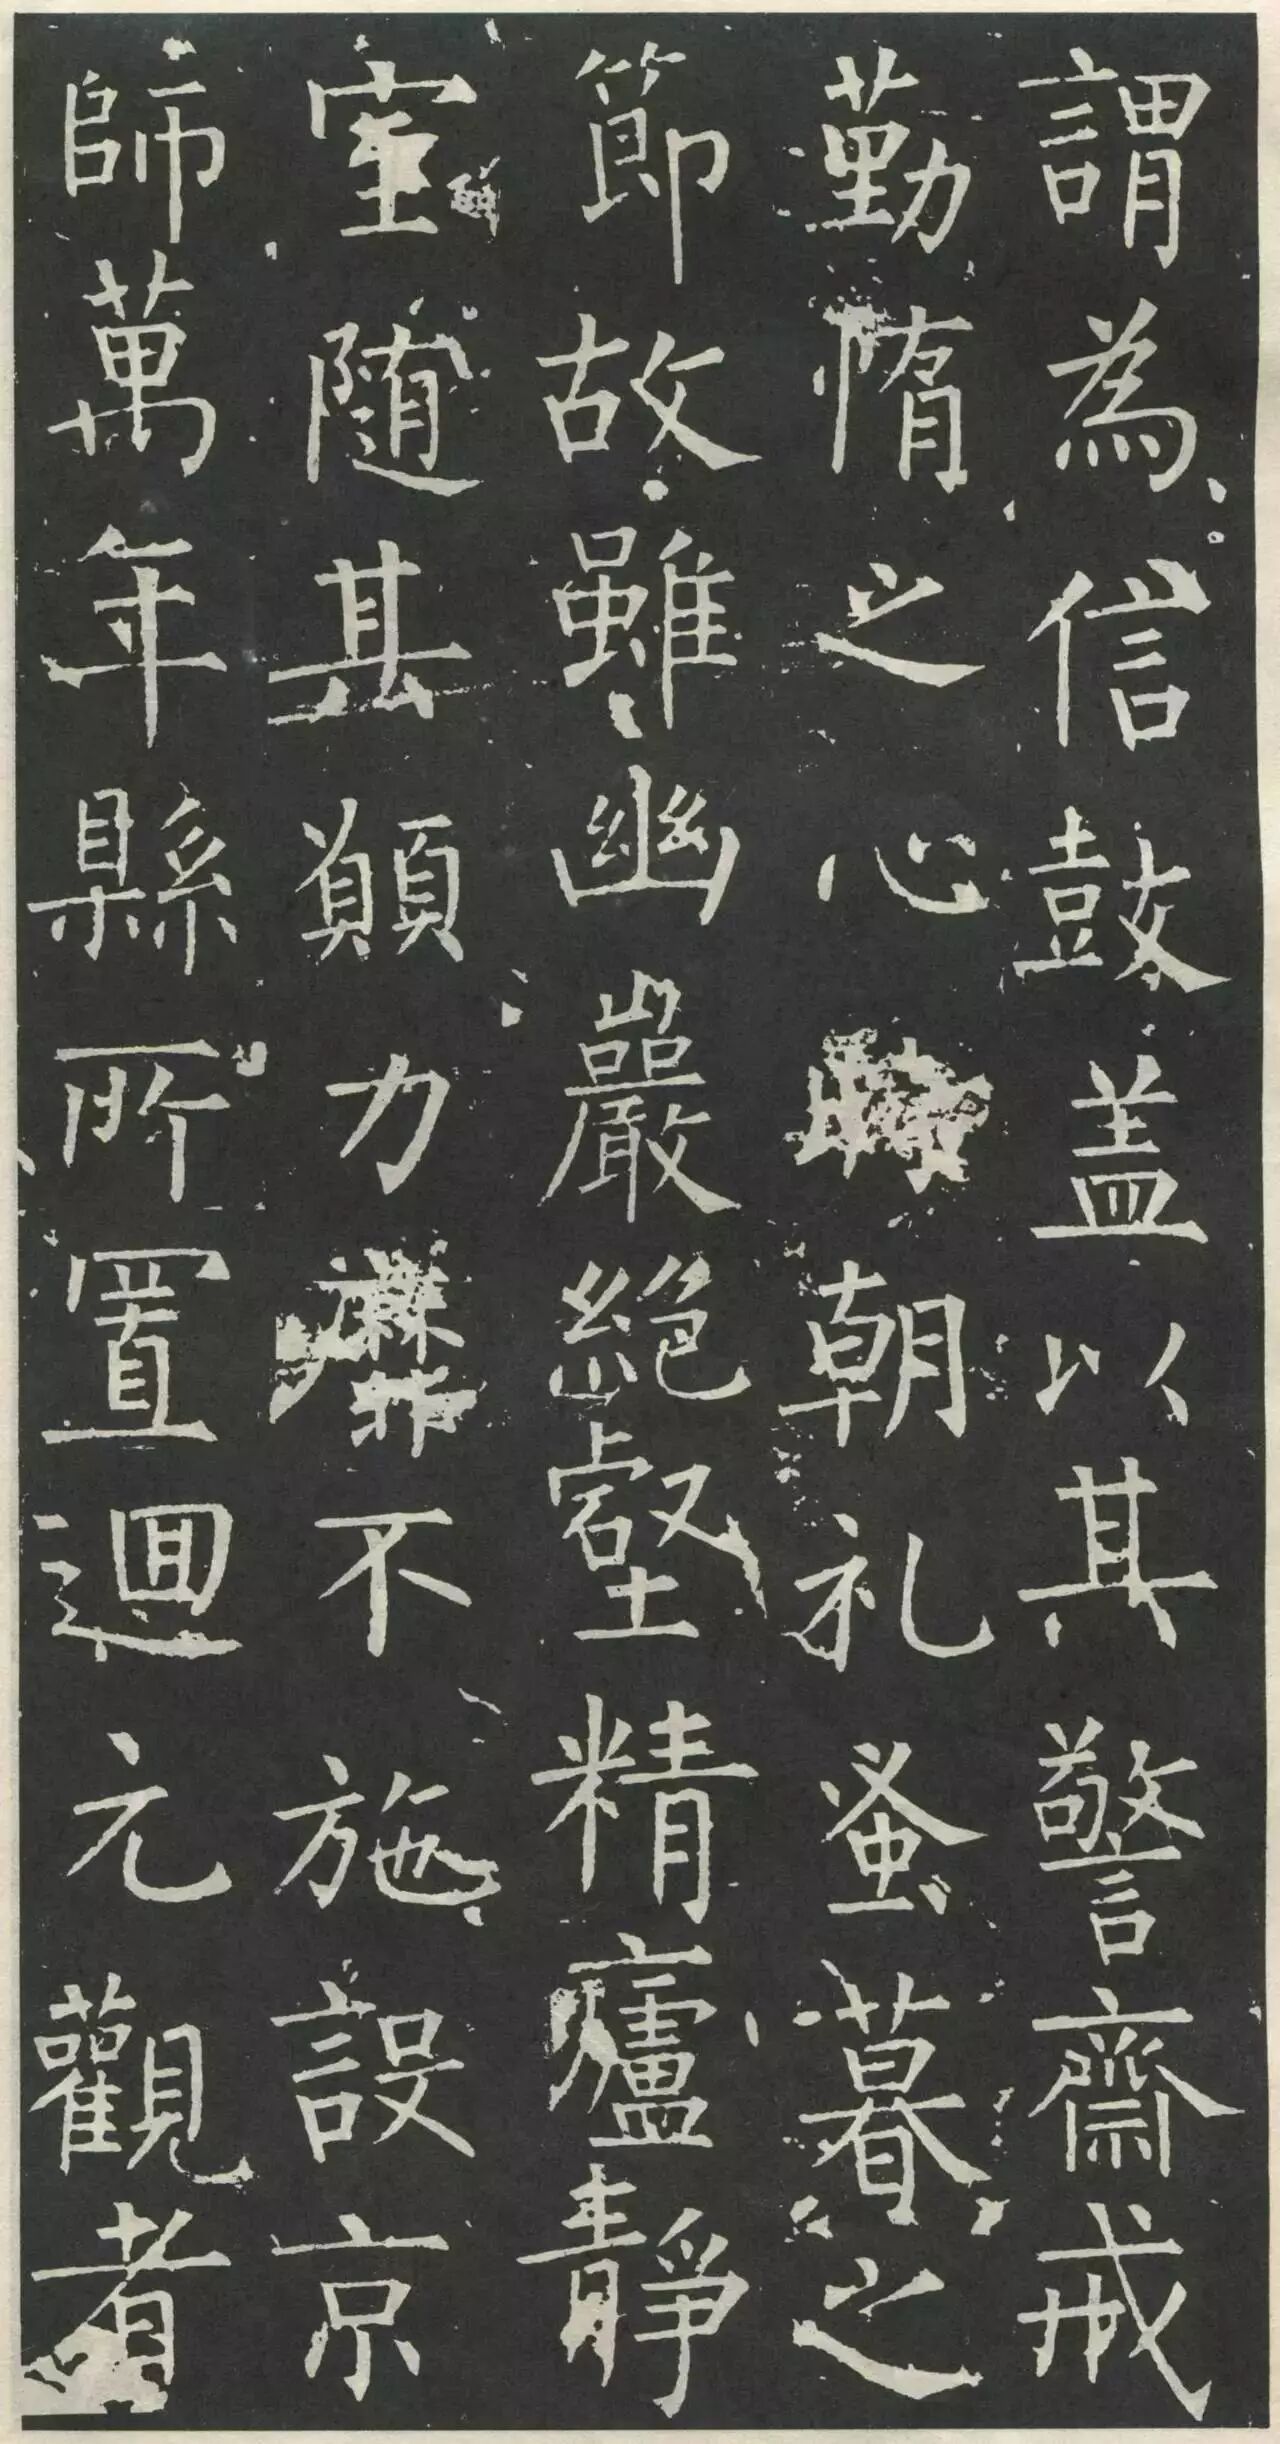 謂為信鼓盖以其警齋戒
勤惰之心時朝礼蚤暮之
節故雖幽巖絶壑精廬靜
室随其願力靡不施設京
師萬年縣所置迴元觀者